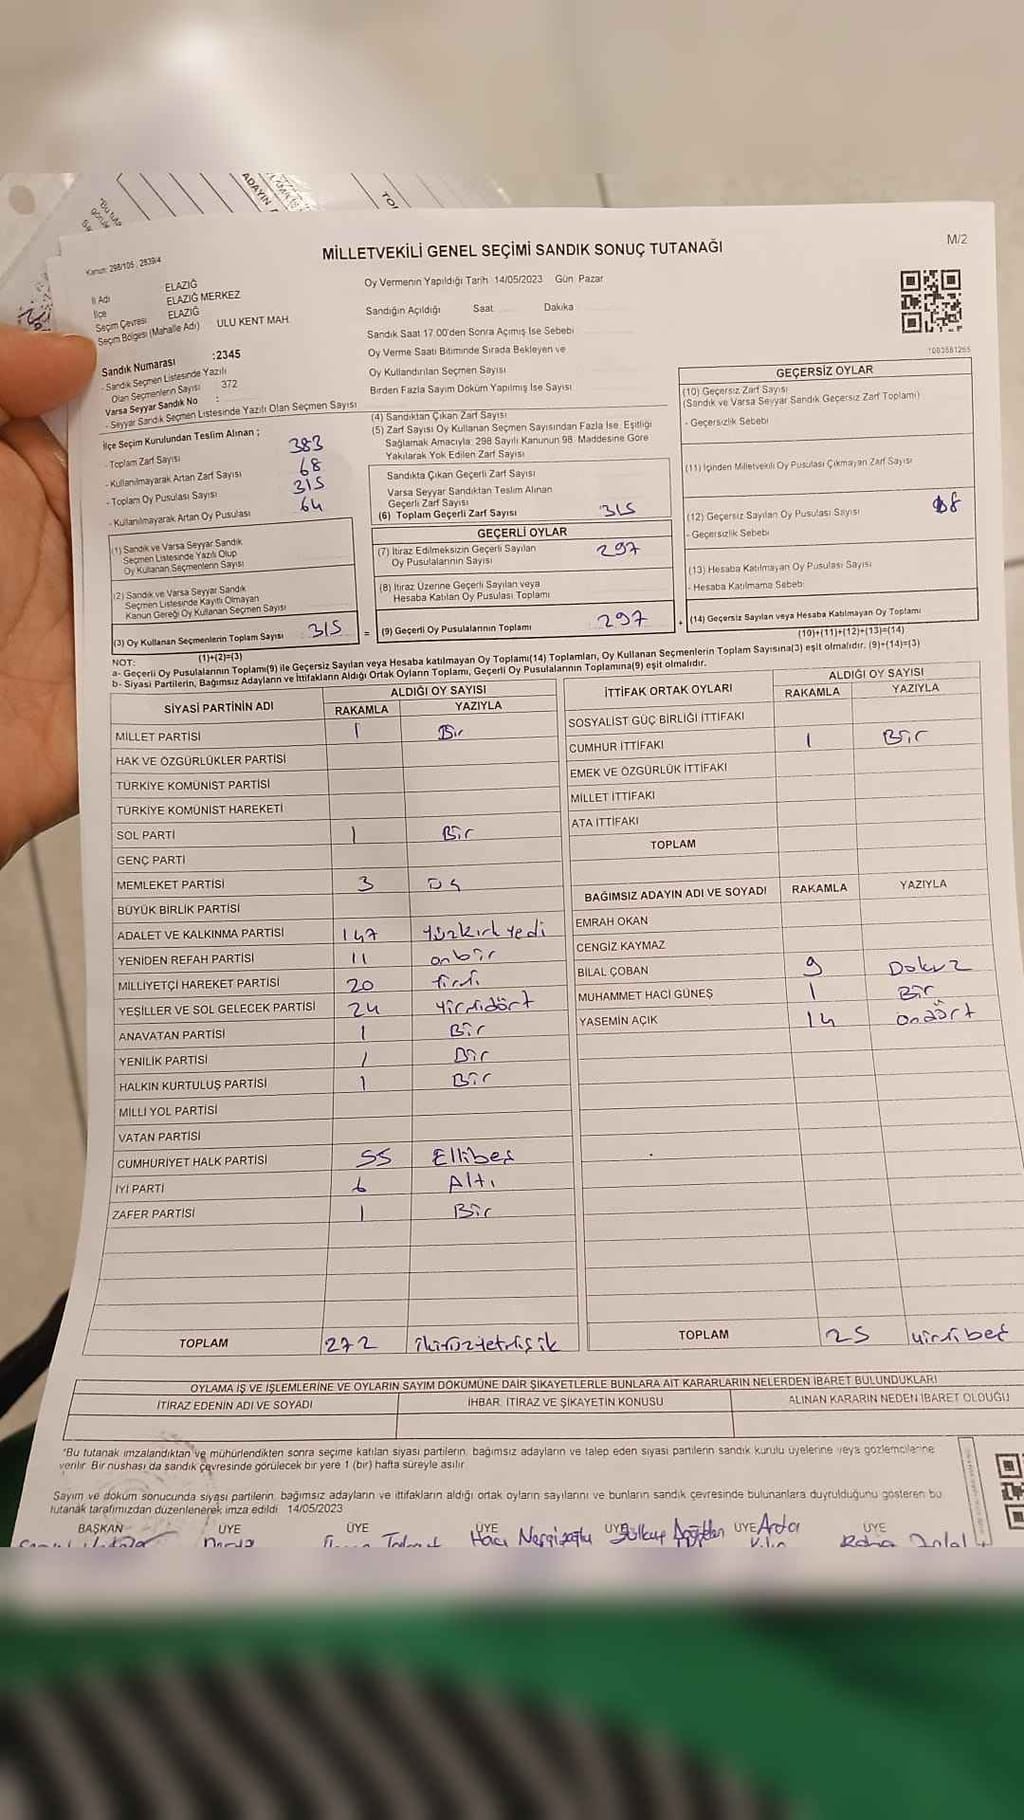 ADAYIN
MİLLETVEKİLİ GENEL SEÇİMİ SANDIK SONUÇ TUTANAĞI
M/2
Kanun: 298/105 ; 2839/4
İl Adı ELAZIĞ
İlçe ELAZIĞ MERKEZ
Seçim Çevresi ELAZIĞ
Seçim Bölgesi (Mahalle Adı) : ULU KENT MAH.
Sandık Numarası :2345
- Sandık Seçmen Listesinde Yazılı
Olan Seçmenlerin Sayısı 372
Varsa Seyyar Sandık No :
- Seyyar Sandık Seçmen Listesinde Yazılı Olan Seçmen Sayısı
İlçe Seçim Kurulundan Teslim Alınan ;
- Toplam Zarf Sayısı 383
- Kullanılmayarak Artan Zarf Sayısı 68
- Toplam Oy Pusulası Sayısı 315
- Kullanılmayarak Artan Oy Pusulası 64
(1) Sandık ve Varsa Seyyar Sandık
Seçmen Listesinde Yazılı Olup
Oy Kullanan Seçmenlerin Sayısı
(2) Sandık ve Varsa Seyyar Sandık
Seçmen Listesinde Kayıtlı Olmayan
Kanun Gereği Oy Kullanan Seçmen Sayısı
(3) Oy Kullanan Seçmenlerin Toplam Sayısı 315
(1)+(2)=(3)
Oy Vermenin Yapıldığı Tarih 14/05/2023 Gün Pazar
Sandığın Açıldığı Saat Dakika
Sandık Saat 17.00'den Sonra Açımış İse Sebebi
Oy Verme Saati Bitiminde Sırada Bekleyen ve
Oy Kullandırılan Seçmen Sayısı
Birden Fazla Sayım Döküm Yapılmış İse Sayısı
(4) Sandıktan Çıkan Zarf Sayısı
(5) Zarf Sayısı Oy Kullanan Seçmen Sayısından Fazla İse, Eşitliği
Sağlamak Amacıyla; 298 Sayılı Kanunun 98. Maddesine Göre
Yakılarak Yok Edilen Zarf Sayısı
Sandıkta Çıkan Geçerli Zarf Sayısı
Varsa Seyyar Sandıktan Teslim Alınan
Geçerli Zarf Sayısı
(6) Toplam Geçerli Zarf Sayısı 315
GEÇERLİ OYLAR
(7) İtiraz Edilmeksizin Geçerli Sayılan
Oy Pusulalarının Sayısı 297
(8) İtiraz Üzerine Geçerli Sayılan veya
Hesaba Katılan Oy Pusulası Toplamı
= (9) Geçerli Oy Pusulalarının Toplamı 297
1003581265
GEÇERSİZ OYLAR
(10) Geçersiz Zarf Sayısı
(Sandık ve Varsa Seyyar Sandık Geçersiz Zarf Toplamı)
- Geçersizlik Sebebi
(11) İçinden Milletvekili Oy Pusulası Çıkmayan Zarf Sayısı
(12) Geçersiz Sayılan Oy Pusulası Sayısı
- Geçersizlik Sebebi
(13) Hesaba Katılmayan Oy Pusulası Sayısı
- Hesaba Katılmama Sebebi
+ (14) Geçersiz Sayılan veya Hesaba Katılmayan Oy Toplamı
(10)+(11)+(12)+(13)=(14)
NOT:
a- Geçerli Oy Pusulalarının Toplamı(9) ile Geçersiz Sayılan veya Hesaba katılmayan Oy Toplamı(14) Toplamları, Oy Kullanan Seçmenlerin Toplam Sayısına(3) eşit olmalıdır. (9)+(14)=(3)
b- Siyasi Partilerin, Bağımsız Adayların ve İttifakların Aldığı Ortak Oyların Toplamı, Geçerli Oy Pusulalarının Toplamına(9) eşit olmalıdır.
SİYASİ PARTİNİN ADI ALDIĞI OY SAYISI
RAKAMLA YAZIYLA
MİLLET PARTİSİ 1 Bir
HAK VE ÖZGÜRLÜKLER PARTİSİ
TÜRKİYE KOMÜNİST PARTİSİ
TÜRKİYE KOMÜNİST HAREKETİ
SOL PARTİ 1 Bir
GENÇ PARTİ
MEMLEKET PARTİSİ 3
BÜYÜK BİRLİK PARTİSİ
ADALET VE KALKINMA PARTİSİ 147 Yüzkırkyedi
YENİDEN REFAH PARTİSİ 11 onbir
MİLLİYETÇİ HAREKET PARTİSİ 20
YEŞİLLER VE SOL GELECEK PARTİSİ 24 Yirmidört
ANAVATAN PARTİSİ 1 Bir
YENİLİK PARTİSİ 1 Bir
HALKIN KURTULUŞ PARTİSİ 1 Bir
MİLLİ YOL PARTİSİ
VATAN PARTİSİ
CUMHURİYET HALK PARTİSİ 55 Ellibeş
İYİ PARTİ 6 Altı
ZAFER PARTİSİ 1 Bir
TOPLAM 272
İTTİFAK ORTAK OYLARI ALDIĞI OY SAYISI
RAKAMLA YAZIYLA
SOSYALİST GÜÇ BİRLİĞİ İTTİFAKI
CUMHUR İTTİFAKI 1 Bir
EMEK VE ÖZGÜRLÜK İTTİFAKI
MİLLET İTTİFAKI
ATA İTTİFAKI
TOPLAM
BAĞIMSIZ ADAYIN ADI VE SOYADI RAKAMLA YAZIYLA
EMRAH OKAN
CENGİZ KAYMAZ
BİLAL ÇOBAN 9 Dokuz
MUHAMMET HACI GÜNEŞ 1 Bir
YASEMİN AÇIK 14 ondört
TOPLAM 25 yirmibeş
OYLAMA İŞ VE İŞLEMLERİNE VE OYLARIN SAYIM DÖKÜMÜNE DAİR ŞİKAYETLERLE BUNLARA AİT KARARLARIN NELERDEN İBARET BULUNDUKLARI
İTİRAZ EDENİN ADI VE SOYADI İHBAR, İTİRAZ VE ŞİKAYETİN KONUSU ALINAN KARARIN NEDEN İBARET OLDUĞU
"Bu tutanak imzalandıktan ve mühürlendikten sonra seçime katılan siyasi partilerin, bağımsız adayların ve talep eden siyasi partilerin sandık kurulu üyelerine veya gözlemcilerine
verilir. Bir nüshası da sandık çevresinde görülecek bir yere 1 (bir) hafta süreyle asılır.
Sayım ve döküm sonucunda siyasi partilerin, bağımsız adayların ve ittifakların aldığı ortak oyların sayılarını ve bunların sandık çevresinde bulunanlara duyrulduğunu gösteren bu
tutanak tarafımızdan düzenlenerek imza edildi. 14/05/2023
BAŞKAN ÜYE ÜYE ÜYE ÜYE ÜYE ÜYE
Hacı Nergizoğlu Arda